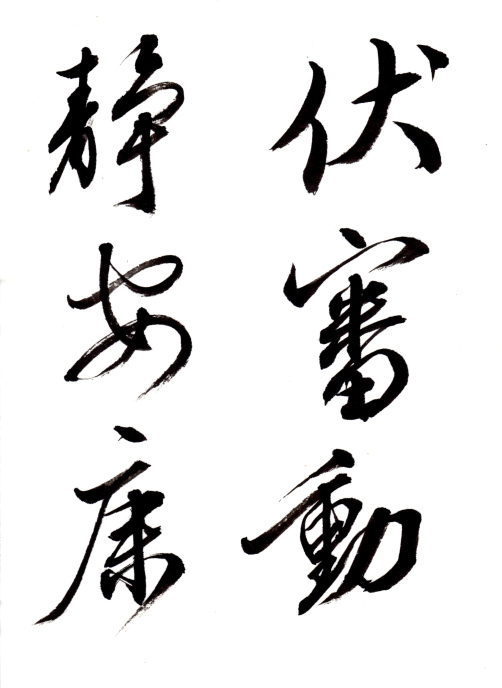 伏審動
静安康